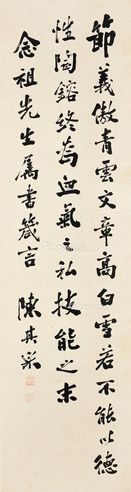 節義傲青雲文章高白雪若不能以德
性陶鎔終為血氣之私技能之末
念祖先生屬書箴言 陳其采